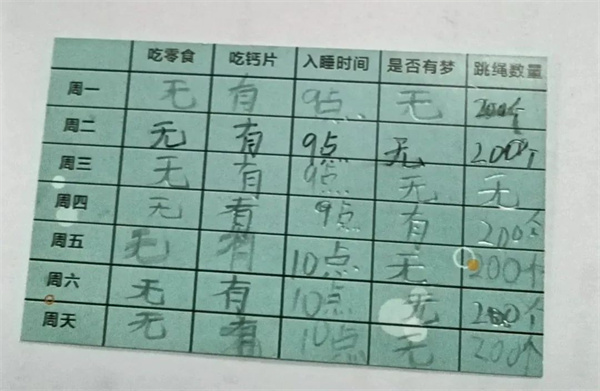 吃零食 吃钙片 入睡时间 是否有梦 跳绳数量
周一 无 有 9点 无 200个
周二 无 有 9点 无 200个
周三 无 有 9点 无 无
周四 无 有 9点 有 200个
周五 无 有 10点 无 200个
周六 无 有 10点 无 200个
周天 无 有 10点 无 200个